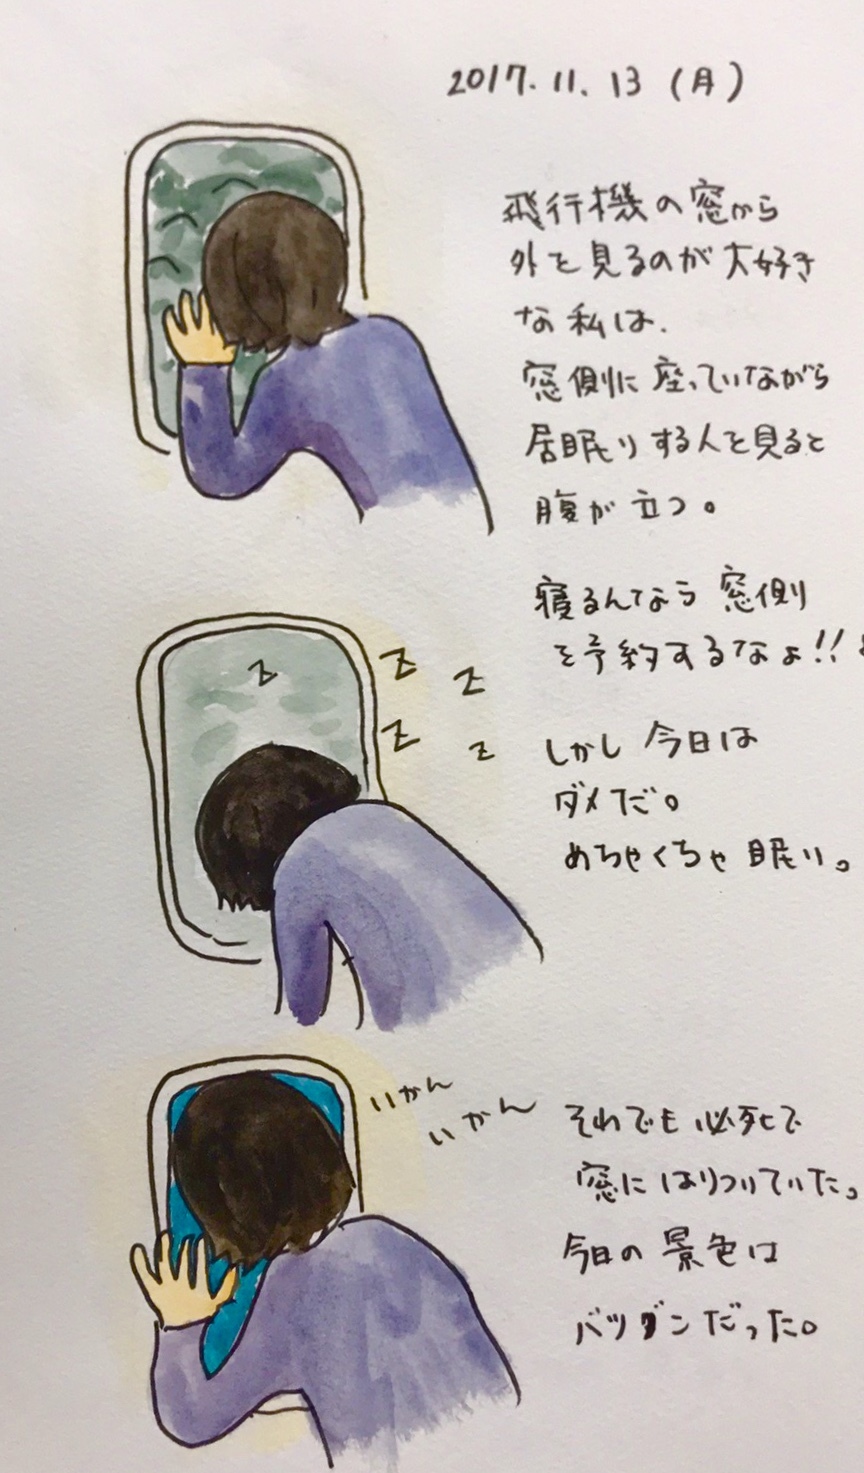 2017.11.13(月)
飛行機の窓から
外を見るのが大好き
な私は、
窓側に座っていながら
居眠りする人を見ると
腹が立つ。
寝るんなら窓側
を予約するなよ!!
Z
Z
Z
Z
z
しかし今日は
ダメだ。
めちゃくちゃ眠い。
いかん
いかん
それでも必死で
窓にはりついていた。
今日の景色は
バツグンだった。